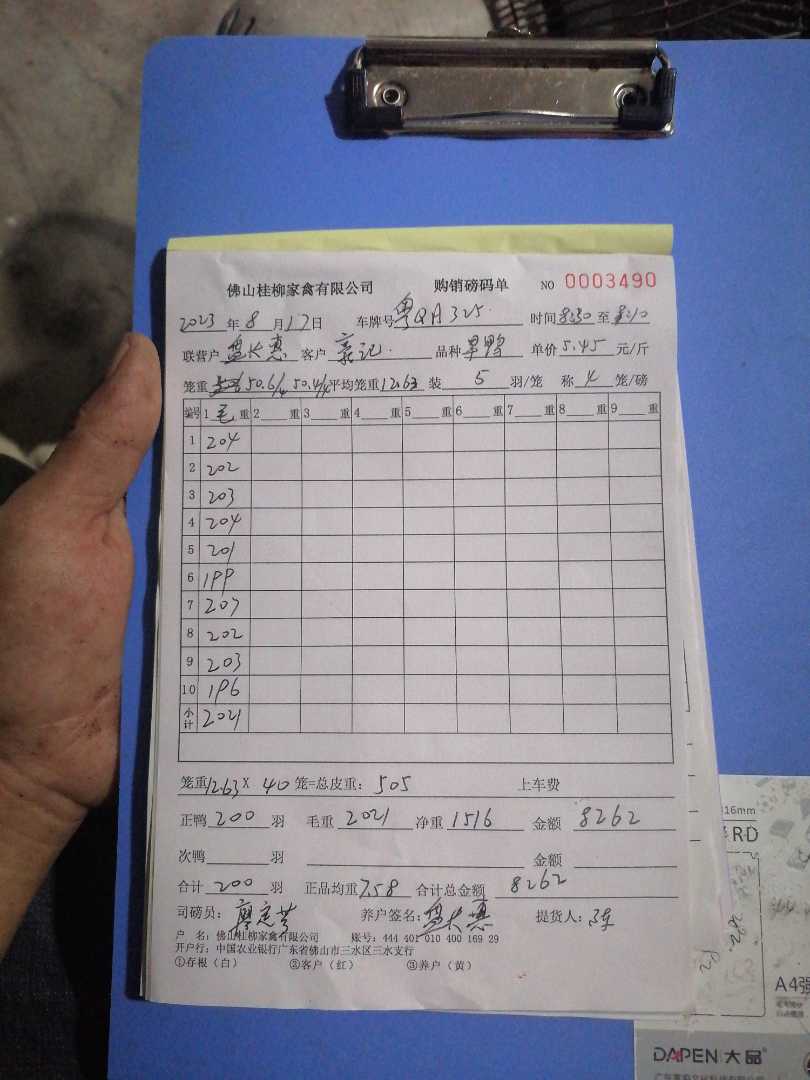 佛山桂柳家禽有限公司 购销磅码单 NO 0003490
2023 年 8 月 17 日 车牌号 粤QA325 时间 8:30 至
联营户 盘长惠 客户 记 品种 单价 5.45 元/斤
笼重 50.6/4 50.4/4 平均笼重 12.63 装 5 羽/笼 称 4 笼/磅
编号 1 毛 重 2 重 3 重 4 重 5 重 6 重 7 重 8 重 9 重
1 204
2 202
3 203
4 204
5 201
6 199
7 207
8 202
9 203
10 196
小计 2021
笼重 12.63 X 40 笼=总皮重: 505 上车费
正鸭 200 羽 毛重 2021 净重 1516 金额 8262
次鸭 羽 金额
合计 200 羽 正品均重 7.58 合计总金额 8262
司磅员: 养户签名: 盘长惠 提货人:
户 名: 佛山桂柳家禽有限公司 账号: 444 401 010 400 169 29
开户行: 中国农业银行广东省佛山市三水区三水支行
①存根（白） ②客户（红） ③养户（黄）
16mm
R·D
A4强
DAPEN 大品